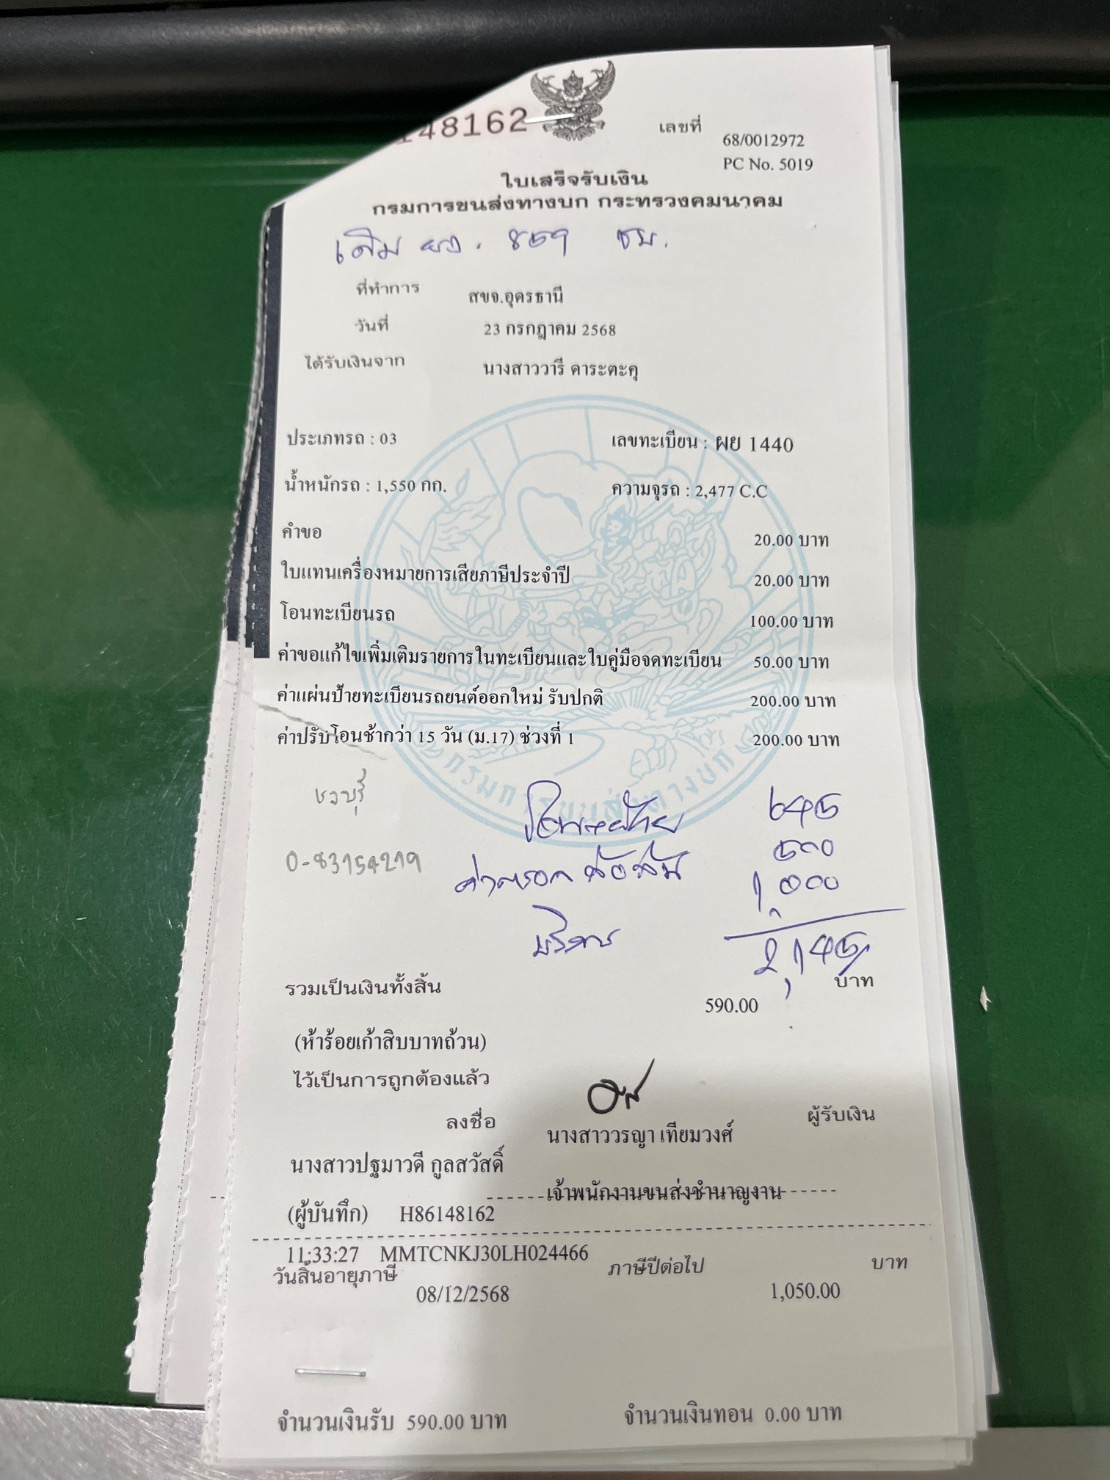 148162
เลขที่ 68/0012972
PC No. 5019
ใบเสร็จรับเงิน
กรมการขนส่งทางบก กระทรวงคมนาคม
เดิม ๘๕๑ ชบ.
ที่ทำการ สขจ.อุดรธานี
วันที่ 23 กรกฎาคม 2568
ได้รับเงินจาก นางสาววารี ดาระตะคุ
ประเภทรถ : 03 เลขทะเบียน : ผย 1440
น้ำหนักรถ : 1,550 กก. ความจุรถ : 2,477 C.C
คำขอ 20.00 บาท
ใบแทนเครื่องหมายการเสียภาษีประจำปี 20.00 บาท
โอนทะเบียนรถ 100.00 บาท
ค่าขอแก้ไขเพิ่มเติมรายการในทะเบียนและใบคู่มือจดทะเบียน 50.00 บาท
ค่าแผ่นป้ายทะเบียนรถยนต์ออกใหม่ รับปกติ 200.00 บาท
ค่าปรับโอนช้ากว่า 15 วัน (ม.17) ช่วงที่ 1 200.00 บาท
กรมการขนส่งทางบก
ชลบุรี
๖๔๕
0-83154219
๕๐๐
1,000
บริการ 2,145
รวมเป็นเงินทั้งสิ้น 590.00 บาท
(ห้าร้อยเก้าสิบบาทถ้วน)
ไว้เป็นการถูกต้องแล้ว
ลงชื่อ ผู้รับเงิน
นางสาววรญา เทียมวงศ์
นางสาวปฐมาวดี กูลสวัสดิ์
เจ้าพนักงานขนส่งชำนาญงาน
(ผู้บันทึก) H86148162
11:33:27 MMTCNKJ30LH024466
วันสิ้นอายุภาษี 08/12/2568 ภาษีปีต่อไป 1,050.00 บาท
จำนวนเงินรับ 590.00 บาท จำนวนเงินทอน 0.00 บาท